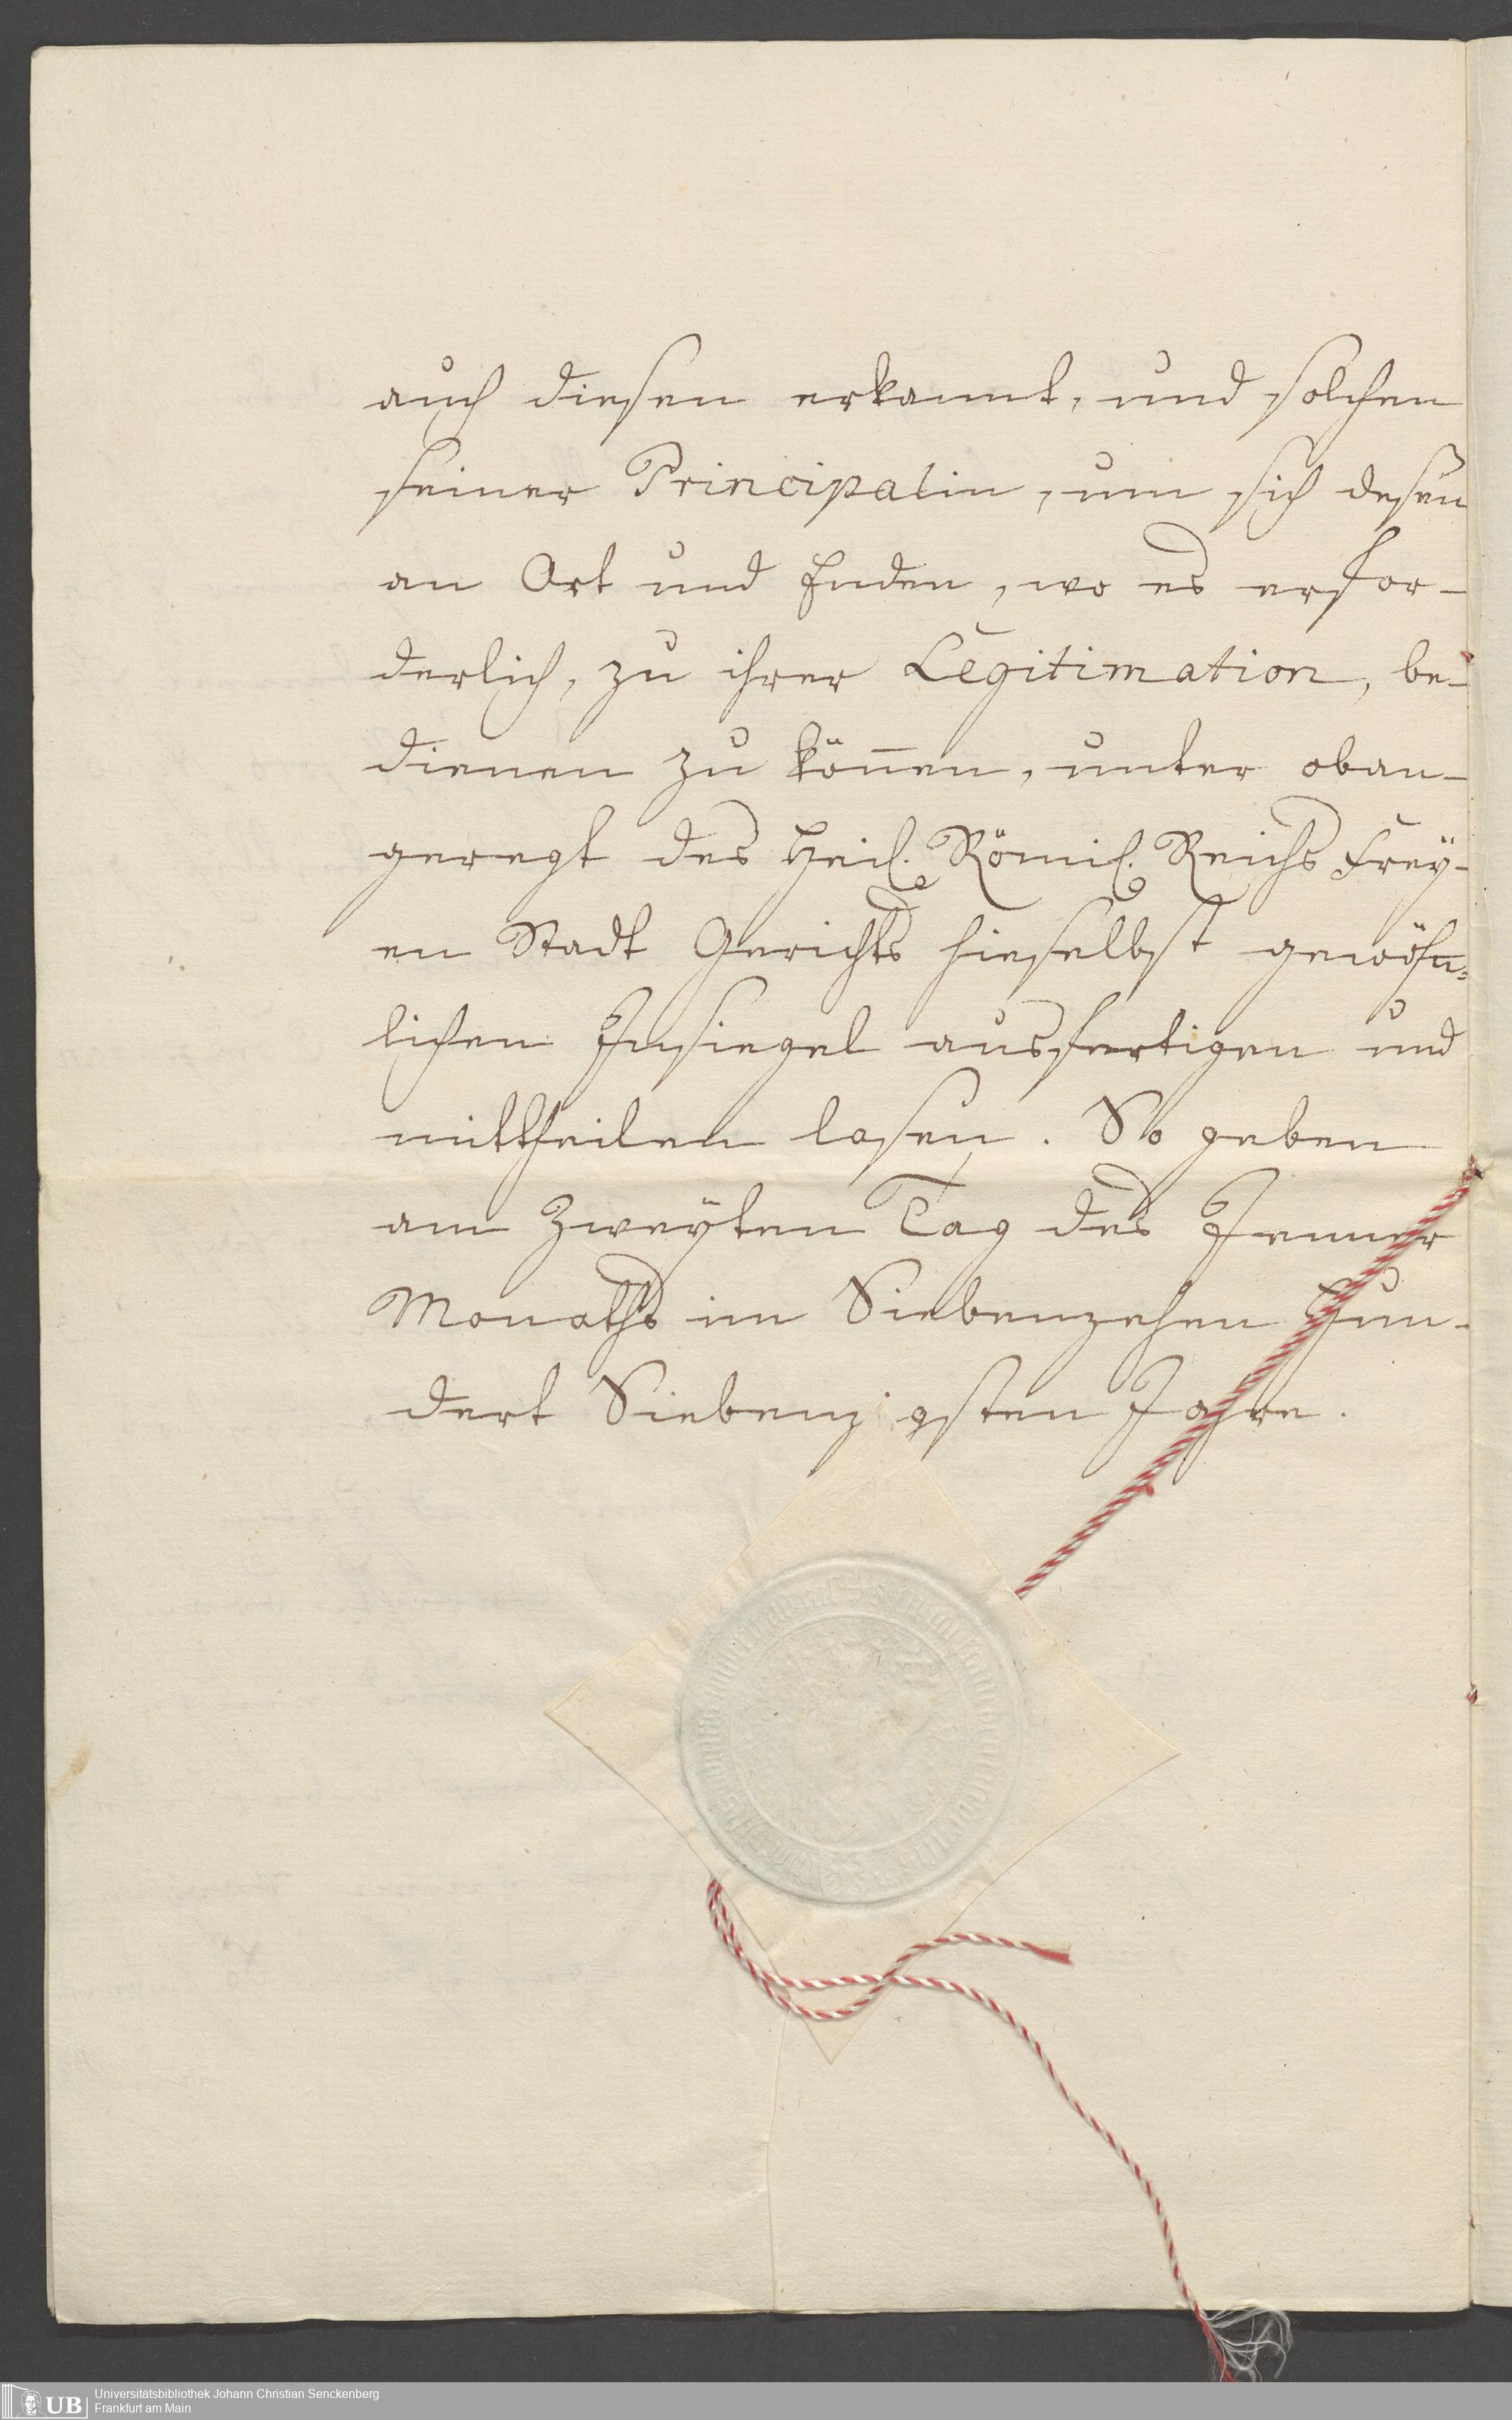 auch diesen erkannt, und solchen
seiner Principalin, um sich deßen
an Ort und Enden, wo es erfor-
derlich, zu ihrer Legitimation, be-
dienen zu können, unter oban-
geregt des Heil. Römis. Reichs Frey-
en Stadt Gerichts hieselbst gewöhn-
lichen Insiegel ausfertigen und
mittheilen laßen. So geben
am Zweyten Tag des Jenner
Monaths im Siebenzehen Hun-
dert Siebenzigsten Jahre.
UB
Universitätsbibliothek Johann Christian Senckenberg
Frankfurt am Main